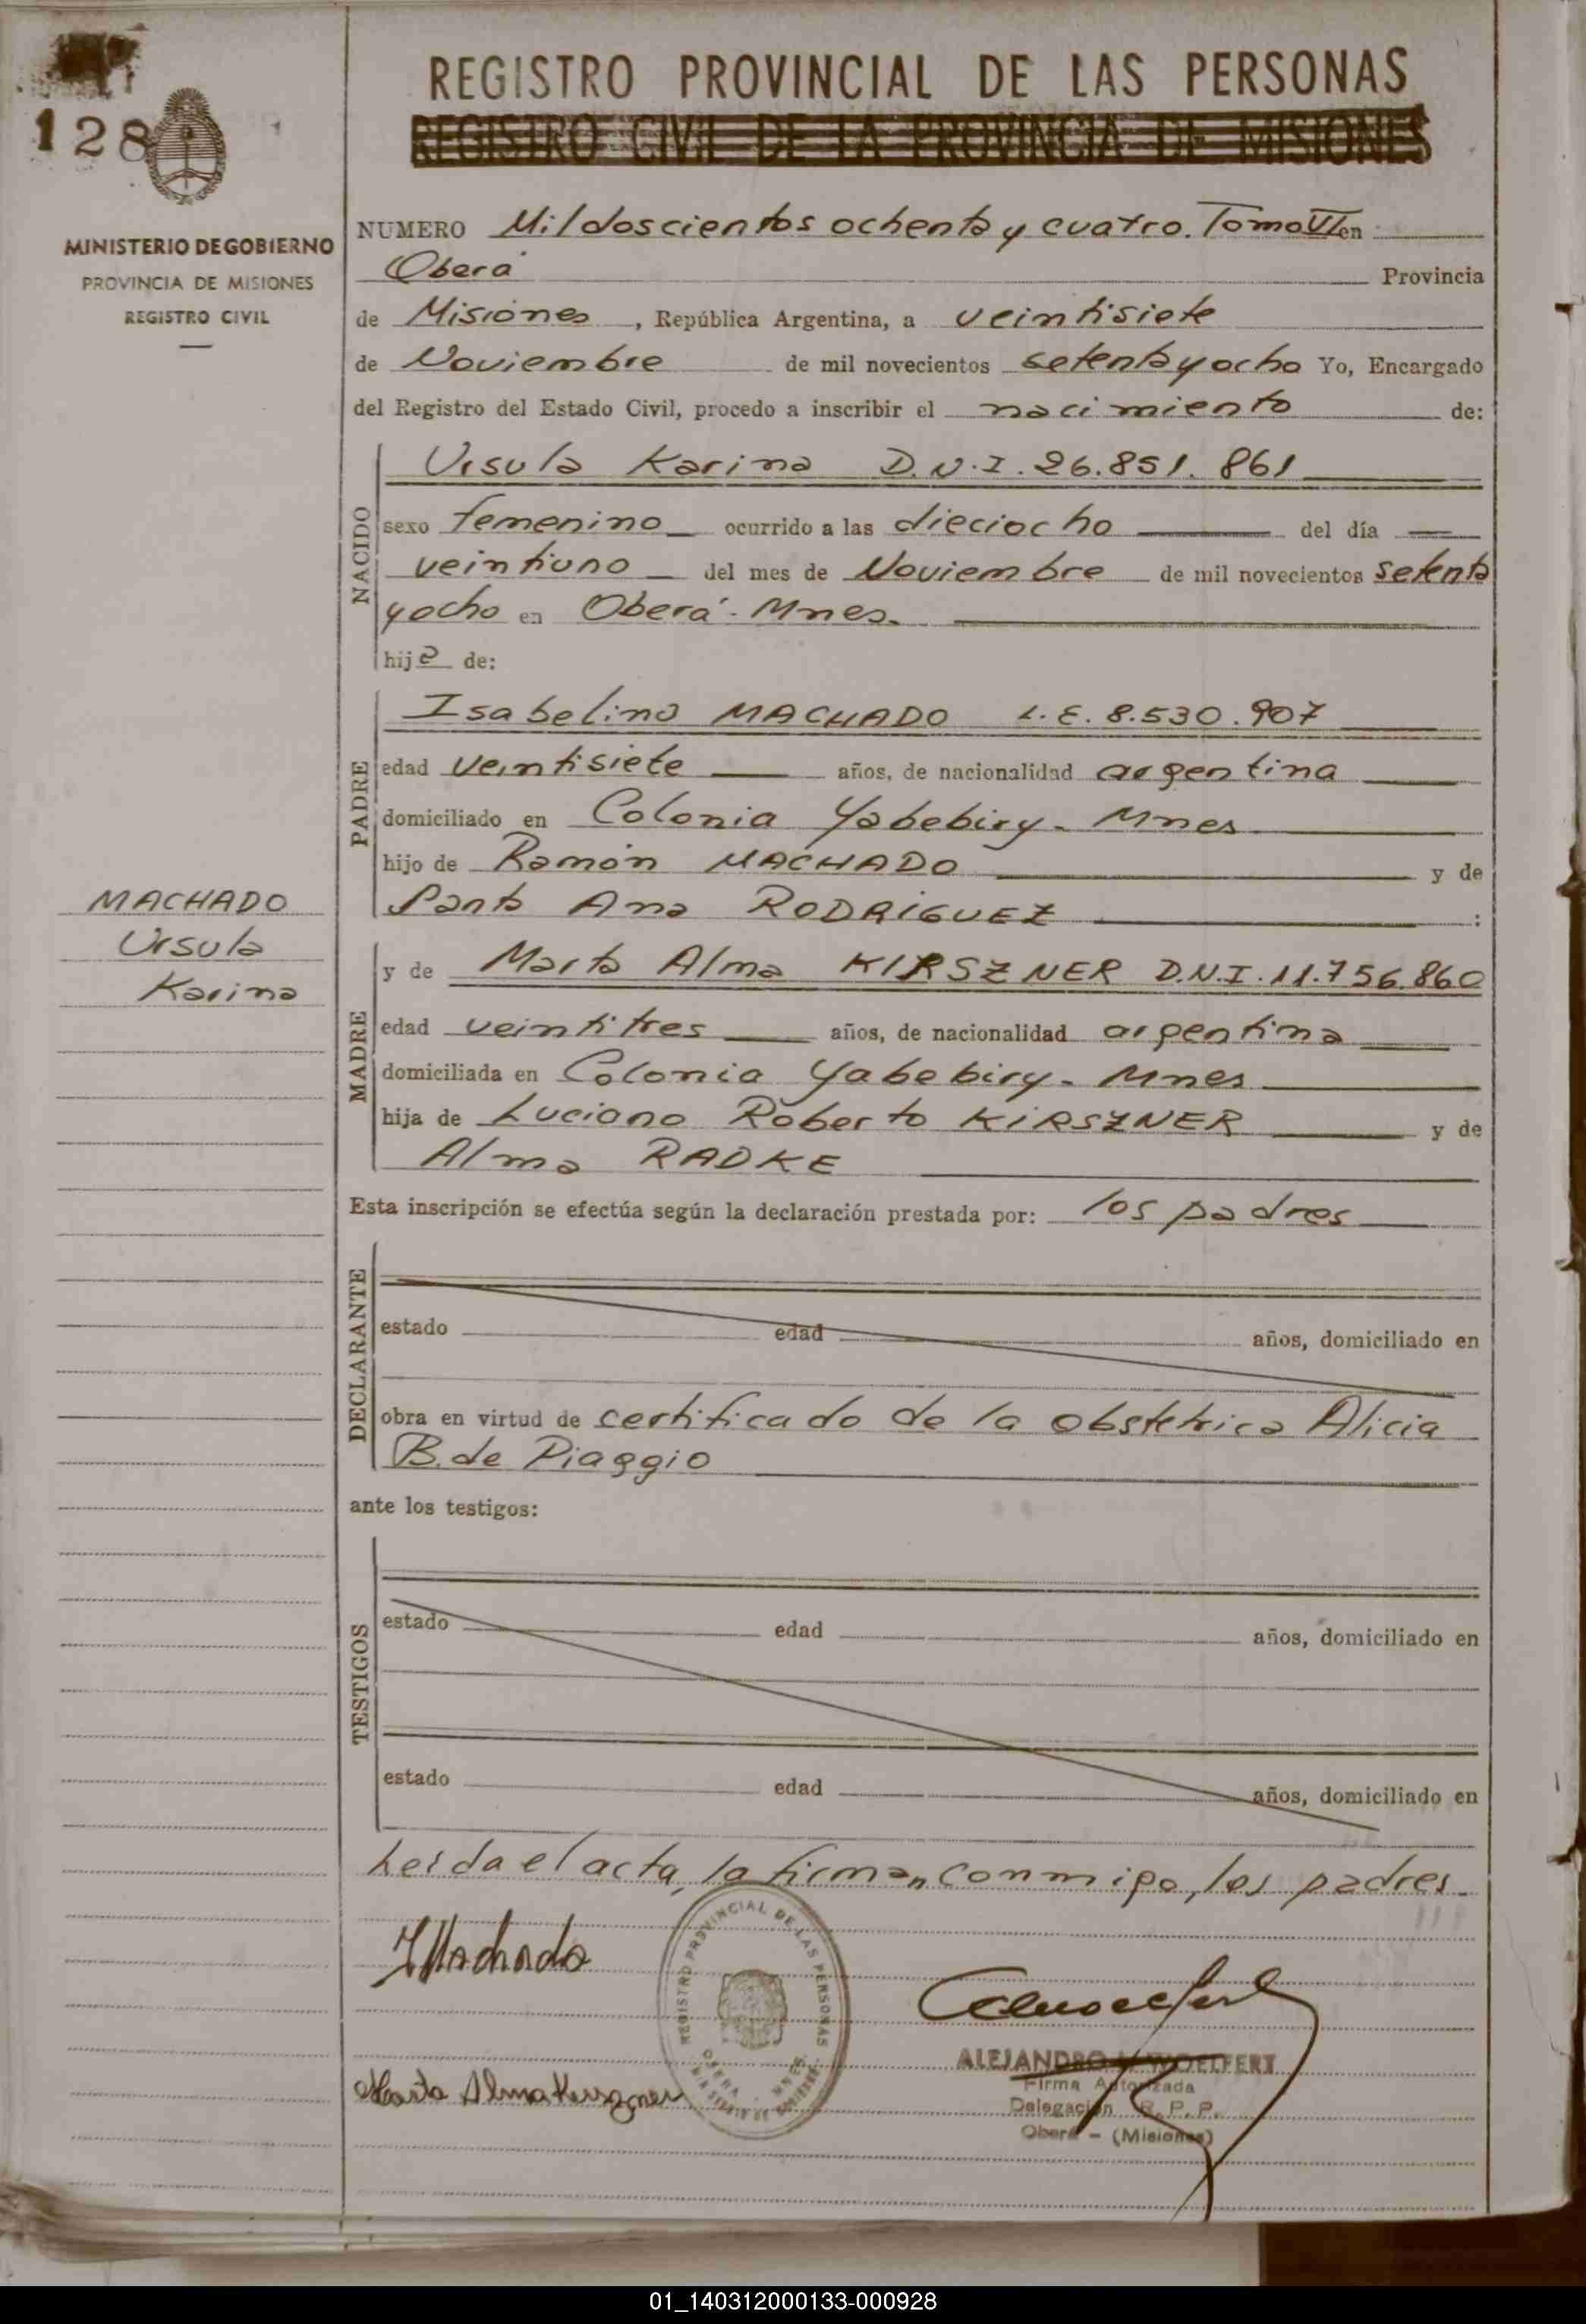 128
REGISTRO PROVINCIAL DE LAS PERSONAS
REGISTRO CIVIL DE LA PROVINCIA DE MISIONES
MINISTERIO DE GOBIERNO
PROVINCIA DE MISIONES
REGISTRO CIVIL
NUMERO Mil doscientos ochenta y cuatro. Tomo VI en
Oberá Provincia
de Misiones, República Argentina, a veintisiete
de Noviembre de mil novecientos setenta y ocho Yo, Encargado
del Registro del Estado Civil, procedo a inscribir el nacimiento de:
NACIDO
Ursula Karina D.N.I. 26.851.861
sexo femenino ocurrido a las dieciocho del día
veintiuno del mes de Noviembre de mil novecientos setenta
y ocho en Oberá - Mnes.
hija de:
PADRE
Isabelino MACHADO L.E. 8.530.907
edad veintisiete años, de nacionalidad argentina
domiciliado en Colonia Yabebiry - Mnes
hijo de Ramón MACHADO y de
Santa Ana RODRIGUEZ :
MACHADO
Ursula
Karina
MADRE
y de Marta Alma KIRSZNER D.N.I. 11.756.860
edad veintitres años, de nacionalidad argentina
domiciliada en Colonia Yabebiry - Mnes
hija de Luciano Roberto KIRSZNER y de
Alma RADKE
Esta inscripción se efectúa según la declaración prestada por: los padres
DECLARANTE
estado edad años, domiciliado en
obra en virtud de certificado de la obstetrica Alicia
B. de Piaggio
ante los testigos:
TESTIGOS
estado edad años, domiciliado en
estado edad años, domiciliado en
Leida el acta, la firman conmigo, los padres.
I Machado
REGISTRO PROVINCIAL DE LAS PERSONAS
OBERA - MNES.
MINISTERIO DE GOBIERNO
Marta Alma Kirszner
ALEJANDRO WOELFERT
Firma Autorizada
Delegación R.P.P.
Oberá - (Misiones)
01_140312000133-000928